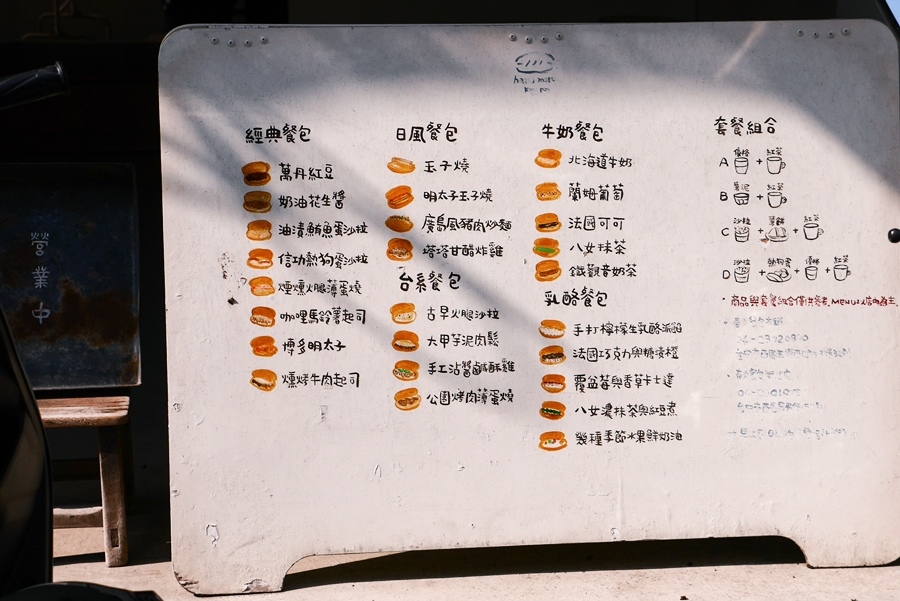 營業中
經典餐包
萬丹紅豆
奶油花生醬
油漬鮪魚蛋沙拉
信功熱狗蛋沙拉
煙燻火腿薄蛋燒
咖哩馬鈴薯起司
博多明太子
燻烤牛肉起司
日風餐包
玉子燒
明太子玉子燒
廣島風豬肉炒麵
塔塔甘醋炸雞
台系餐包
古早火腿沙拉
大甲芋泥肉鬆
手工沾醬鹹酥雞
公園烤肉薄蛋燒
牛奶餐包
北海道牛奶
蘭姆葡萄
法國可可
八女抹茶
鐵觀音奶茶
乳酪餐包
手打檸檬生乳酪
法國巧克力與糖漬橙
覆盆莓與香草卡士達
八女濃抹茶與紅豆煮
幾種季節水果鮮奶油
套餐組合
A + 紅茶
B + 紅茶
C 沙拉 + 薯餅 + 紅茶
D 沙拉 + + 紅茶
商品與套餐組合僅供參考,MENU以店內為主.